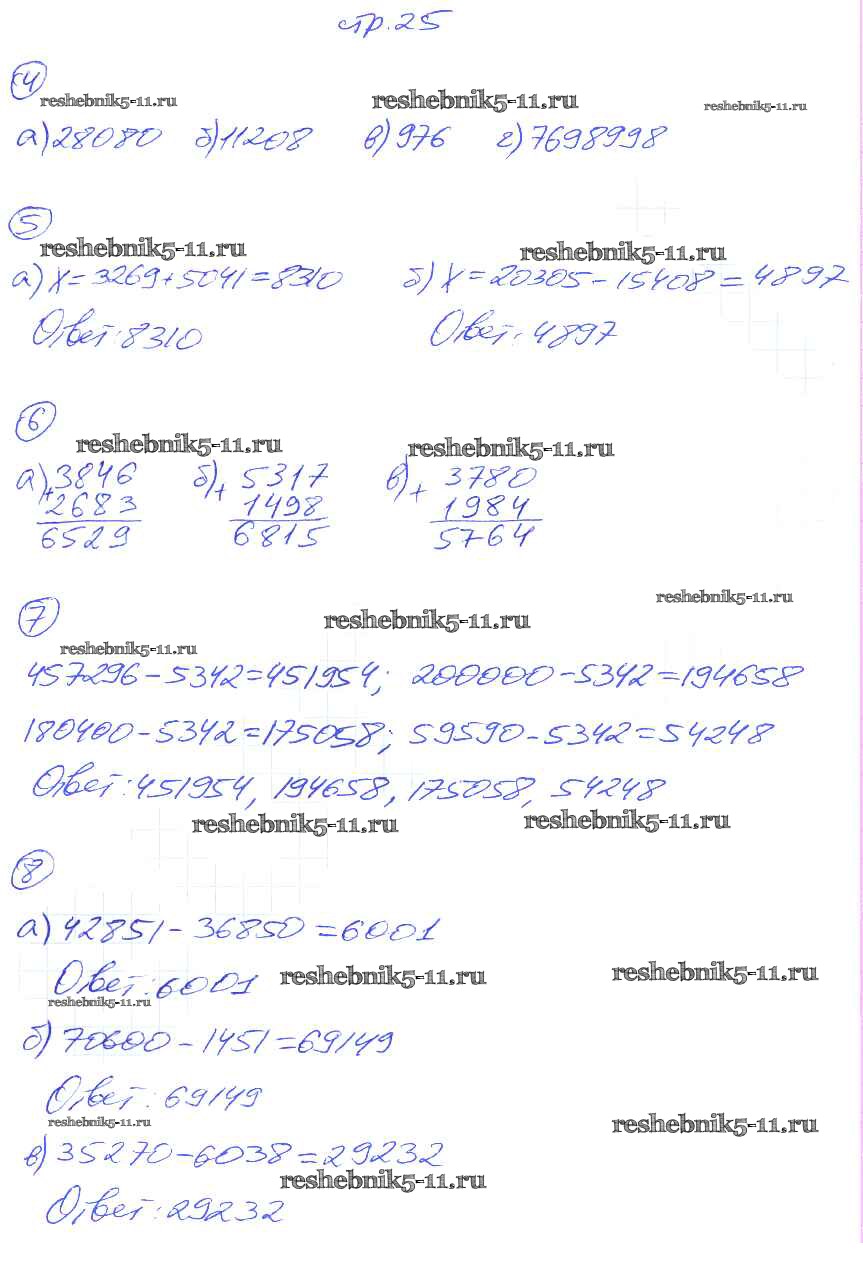 стр.25
4
reshebnik5-11.ru reshebnik5-11.ru reshebnik5-11.ru
а) 28080 б) 11208 в) 976 г) 7698998
5
reshebnik5-11.ru reshebnik5-11.ru
а) х = 3269 + 5041 = 8310 б) х = 20305 - 15408 = 4897
Ответ: 8310 Ответ: 4897
6
reshebnik5-11.ru reshebnik5-11.ru
а) 3846 б) 5317 в) 3780
+ 2683 + 1498 + 1984
6529 6815 5764
7
reshebnik5-11.ru reshebnik5-11.ru
reshebnik5-11.ru
457296 - 5342 = 451954; 200000 - 5342 = 194658
180400 - 5342 = 175058; 59590 - 5342 = 54248
Ответ: 451954, 194658, 175058, 54248
reshebnik5-11.ru reshebnik5-11.ru
8
а) 42851 - 36850 = 6001
Ответ: 6001 reshebnik5-11.ru reshebnik5-11.ru
reshebnik5-11.ru
б) 70600 - 1451 = 69149
Ответ: 69149
reshebnik5-11.ru reshebnik5-11.ru
в) 35270 - 6038 = 29232
reshebnik5-11.ru
Ответ: 29232